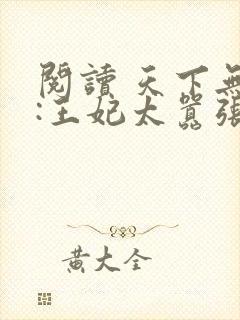 閱讀天下無
:王妃太囂張
黃大全